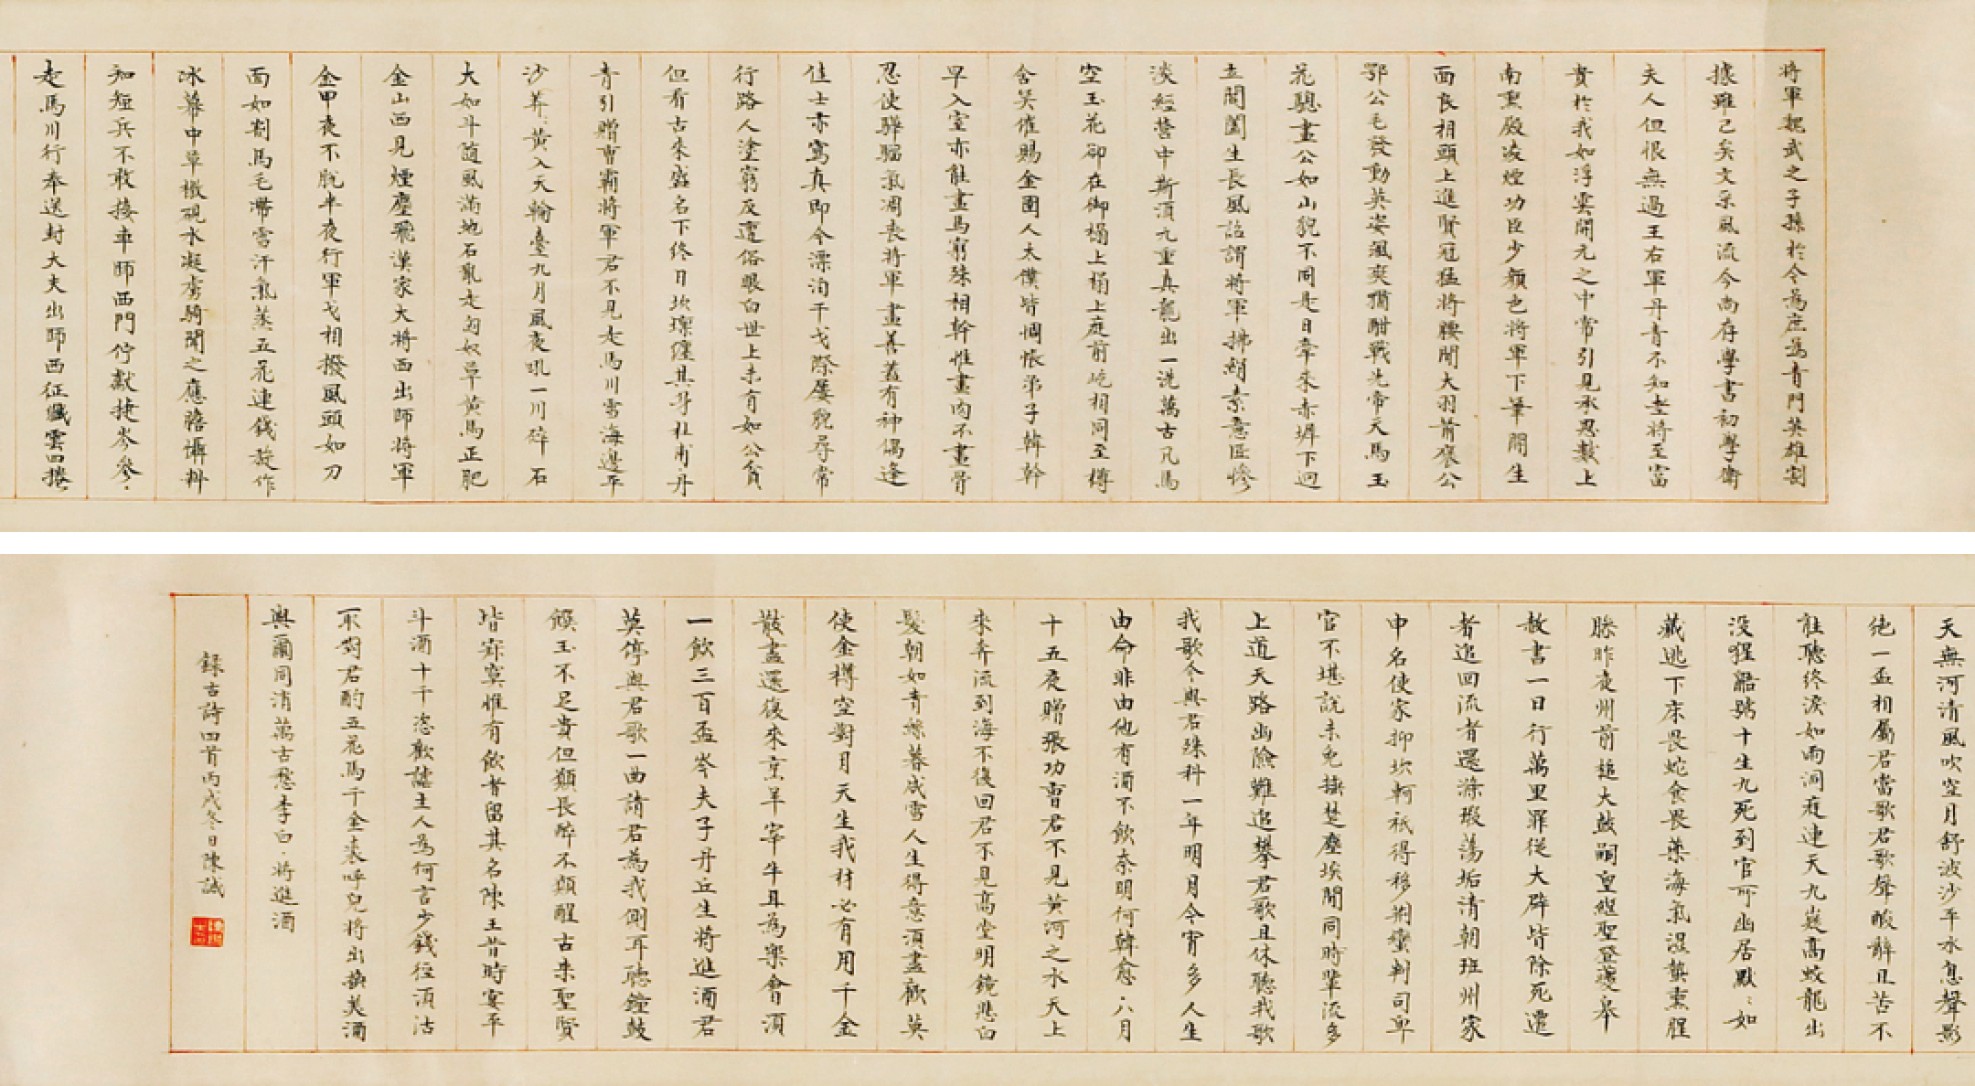 將軍魏武之子孫於今為庶為青門英雄割
據雖已矣文采風流今尚存學書初學衛
夫人但恨無過王右軍丹青不知老將至富
貴於我如浮雲開元之中常引見承恩數上
南熏殿凌煙功臣少顏色將軍下筆開生
面良相頭上進賢冠猛將腰間大羽箭褒公
鄂公毛發動英姿颯爽猶酣戰先帝天馬玉
花驄畫公如山貌不同是日牽來赤墀下迥
立閶闔生長風詔謂將軍拂絹素意匠慘
淡經營中斯須九重真龍出一洗萬古凡馬
空玉花卻在御榻上榻上庭前屹相同至樽
含笑催賜金圉人太僕皆惆悵弟子韓幹
早入室亦能畫馬窮殊相幹惟畫肉不畫骨
忍使驊騮氣凋喪將軍畫善蓋有神偶逢
佳士亦寫真即今漂泊干戈際屢貌尋常
行路人塗窮反遭俗眼白世上未有如公貧
但看古來盛名下終日坎壈纏其身杜甫丹
青引贈曹霸將軍君不見走馬川雪海邊平
沙莽〻黃入天輪臺九月風夜吼一川碎石
大如斗隨風滿地石亂走匈奴草黃馬正肥
金山西見煙塵飛漢家大將西出師將軍
金甲夜不脫半夜行軍戈相撥風頭如刀
面如割馬毛帶雪汗氣蒸五花連錢旋作
冰幕中草檄硯水凝虜騎聞之應膽懾料
知短兵不敢接車師西門佇獻捷岑參〻
走馬川行奉送封大夫出師西征纖雲四捲
天無河清風吹空月舒波沙平水息聲影
絕一盃相屬君當歌君歌聲酸辭且苦不
能聽終淚如雨洞庭連天九嶷高蛟龍出
沒猩鼯號十生九死到官所幽居默〻如
藏逃下床畏蛇食畏藥海氣濕蟄熏腥
臊昨夜州前搥大鼓嗣皇繼聖登夔皋
赦書一日行萬里罪從大辟皆除死遷
者追回流者還滌瑕蕩垢清朝班州家
申名使家抑坎軻祇得移荊蠻判司卑
官不堪說未免捶楚塵埃間同時輩流多
上道天路幽險難追攀君歌且休聽我歌
我歌今與君殊科一年明月今宵多人生
由命非由他有酒不飲奈明何韓愈八月
十五夜贈張功曹君不見黃河之水天上
來奔流到海不復回君不見高堂明鏡悲白
髮朝如青絲暮成雪人生得意須盡歡莫
使金樽空對月天生我材必有用千金
散盡還復來烹羊宰牛且為樂會須
一飲三百盃岑夫子丹丘生將進酒君
莫停與君歌一曲請君為我側耳聽鐘鼓
饌玉不足貴但願長醉不願醒古來聖賢
皆寂寞惟有飲者留其名陳王昔時宴平
斗酒十千恣歡謔主人為何言少錢徑須沽
取對君酌五花馬千金裘呼兒將出換美酒
與爾同消萬古愁李白〻將進酒
錄古詩四首丙戌冬日陳誠